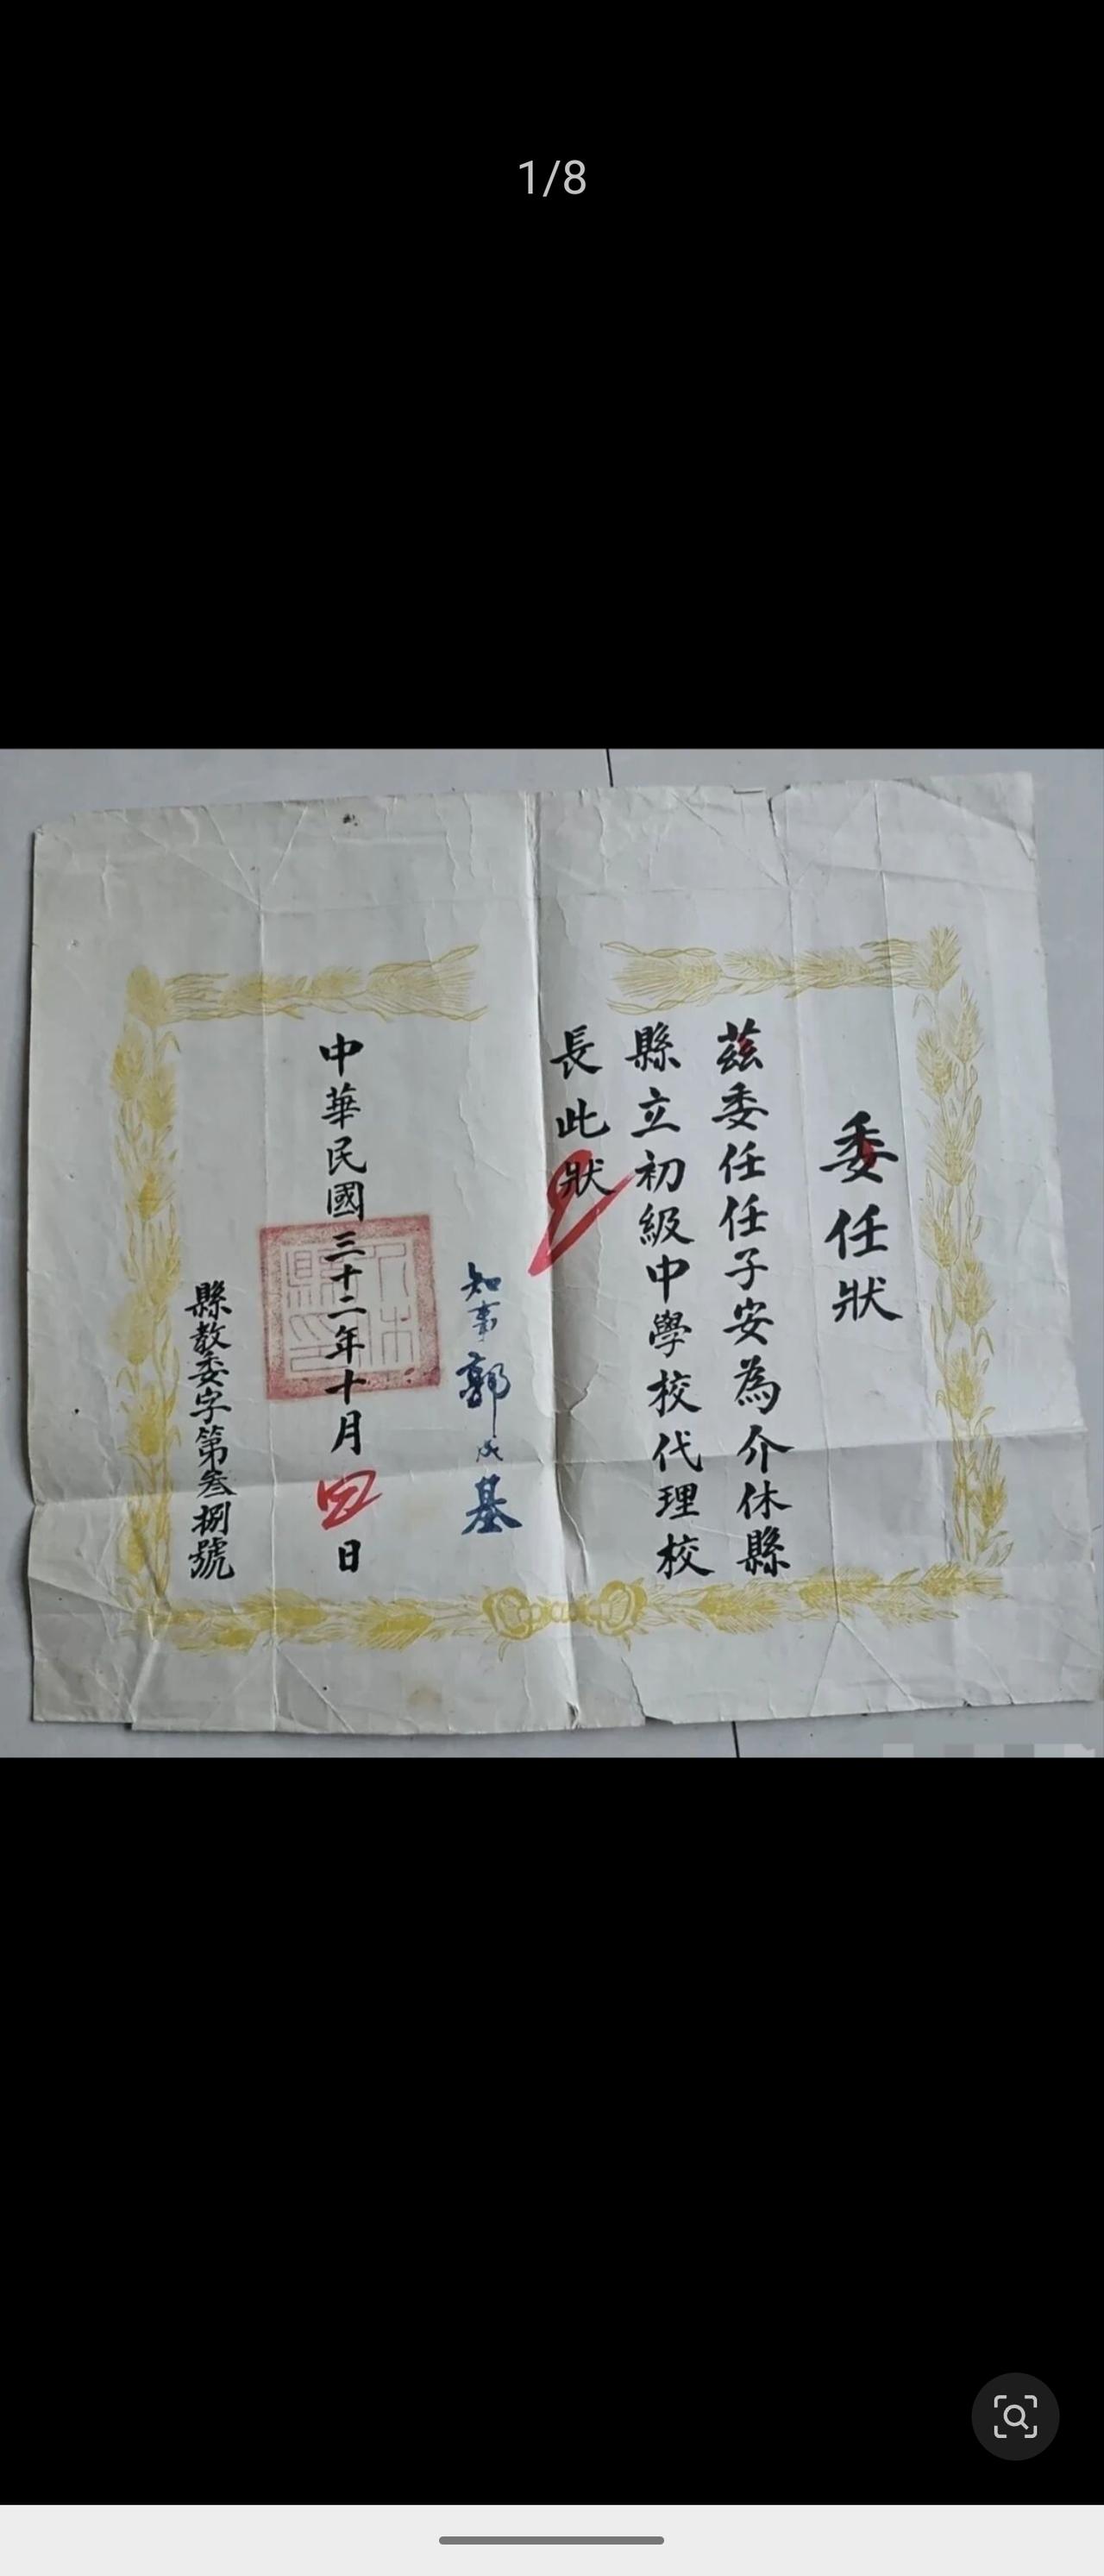 1/8
委任狀
茲委任任子安為介休縣
縣立初級中學校代理校
長此狀
知事郭成基
中華民國三十二年十月四日
介休縣印
縣教委字第叁捌號